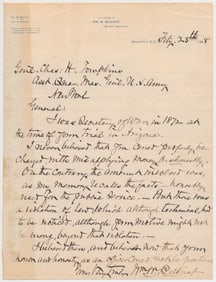 Feb. 25th
Genl. Chas. H. Tompkins
Asst. Quar. Mas. Genl. U.S. Army
New York
General:
I was Secretary of War in 1872 at
the time of your trial in Arizona.
I never believed that you could properly be
charged with misapplying money dishonestly.
On the contrary the amount involved was,
as my memory recalls the facts — honestly
used for the public service. — But there was
a violation of law, which although technical, had
to be noticed, although your motive might not
be wrong, beyond that violation.
I believed then, and believe now that your
honor and honesty, as an officer
Yours truly Wm W. Belknap